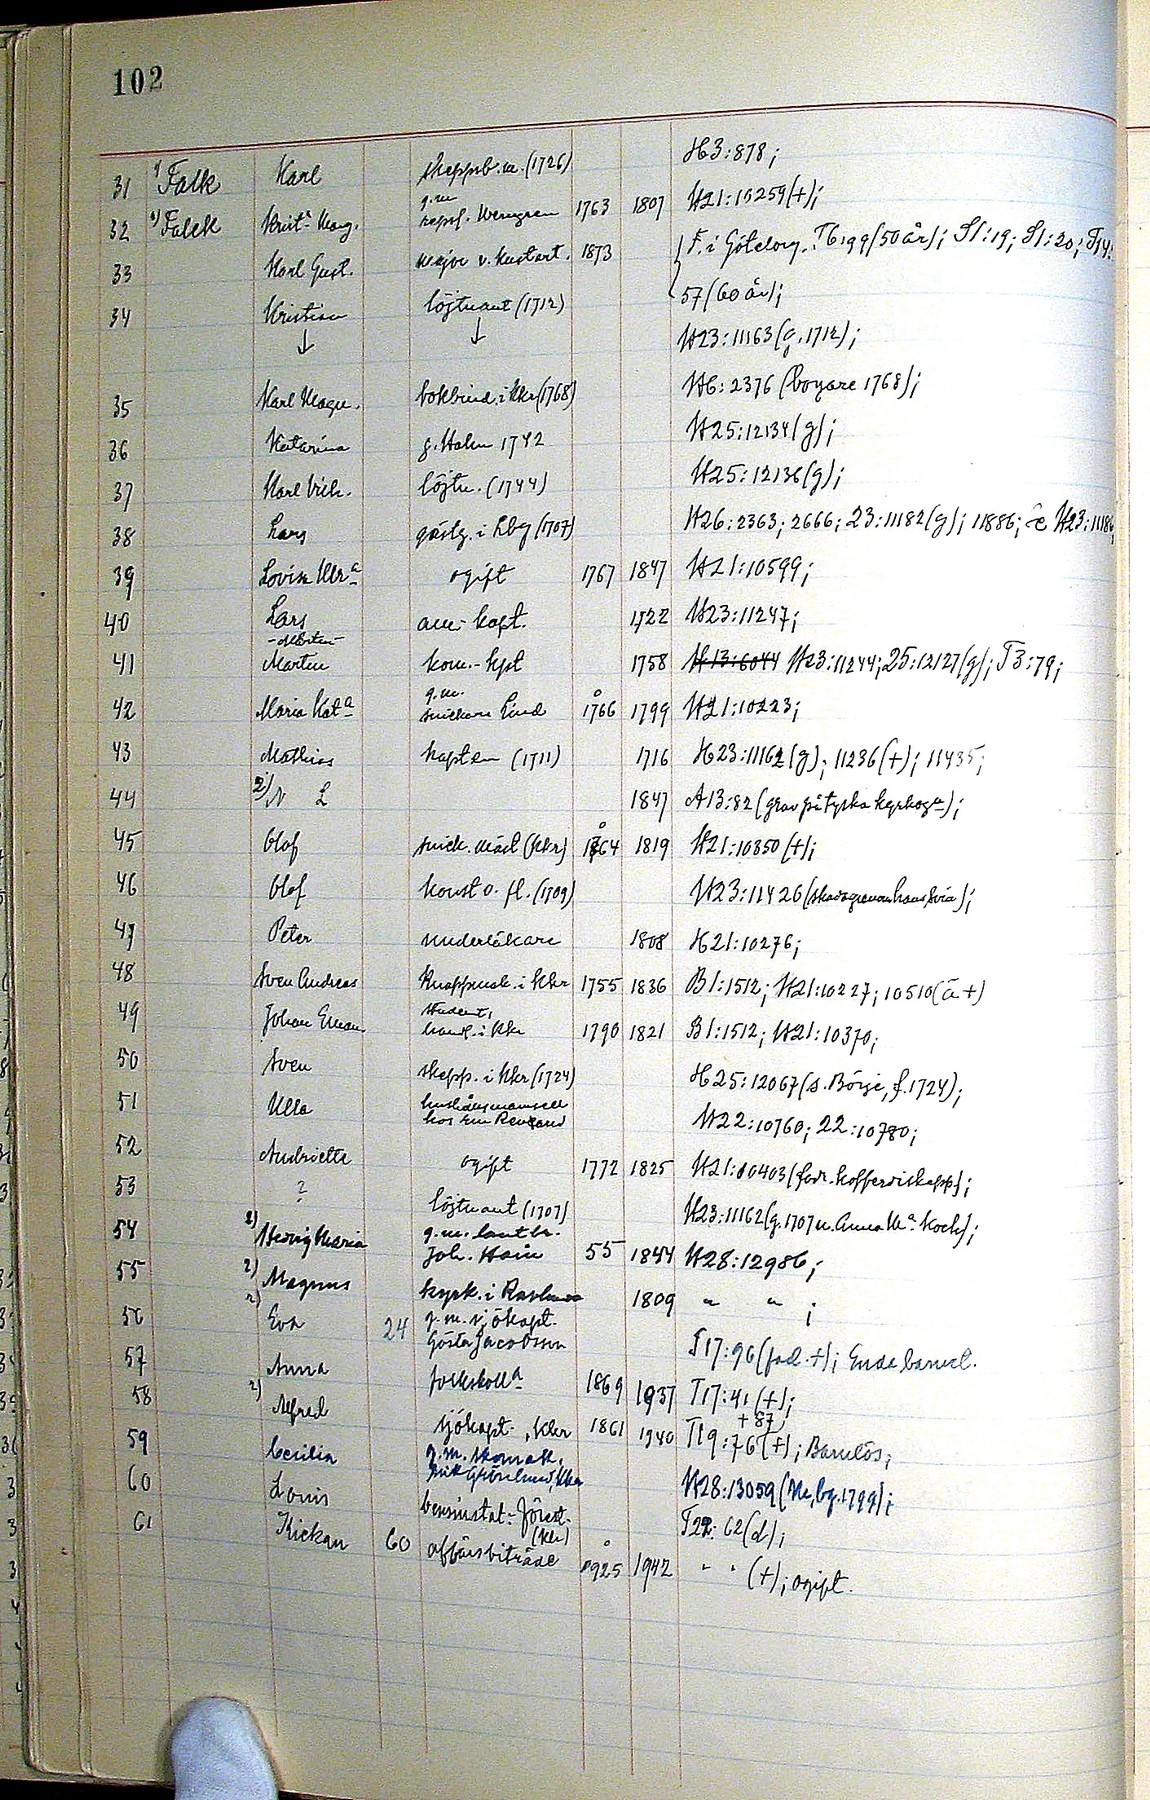 102
31 1) Falk Karl skeppsb. m. (1726) H3:878;
32 2) Falck Krist.a Marg. g.m. repsl. Wemgren 1763 1807 H21:10259(+);
33 Karl Gust. major v. kustart. 1873 F. i Göteborg. T6:99(50 år); S1:19; S1:20; T14:
57(60 år);
34 Kristian löjtnant (1712) H23:11163(g. 1712);
↓ ↓
35 Karl Magn. bokbind. i Kkr (1768) H6:2376 (borgare 1768);
36 Katarina g. Holm 1742 H25:12134(g);
37 Karl Vilh. löjtn. (1744) H25:12136(g);
38 Lars gästg. i Lby (1707) H26:2363; 2666; 23:11182(g); 11886; H23:11186
39 Lovisa Ulr.a ogift 1767 1847 H21:10599;
40 Lars am.-kapt. 1722 H23:11247;
41 -Mårten- Martin kom.-kpt 1758 H13:6044 H23:11244; 25:12127(g); T3:79;
42 Maria Kat.a g.m. snickare Lind 1766 1799 H21:10223;
43 Mathias kapten (1711) 1716 H23:11162(g); 11236(+); 11435;
44 2) N L 1847 A13:82 (grav på tyska kyrkog.);
45 Olof snick. mäst (Kkr) 1764 1819 H21:10350(+);
46 Olof konst. v. fl. (1709) H23:11426
47 Peter underläkare 1808 H21:10276;
48 Sven Andreas knappmak. i Kkr 1755 1836 B1:1512; H21:10227; 10510(a+)
49 Johan Eman. student, handl. i Kkr 1790 1821 B1:1512; H21:10370;
50 Sven skepp. i Kkr (1724) H25:12067 (s. Börje, f. 1724);
51 Ulla hushållsmamsell hos H22:10760; 22:10780;
52 Andrietta ogift 1772 1825 H21:10403 (fadr. kofferdiskepp);
53 ? löjtnant (1707) H23:11162 (g. 1707 m. Anna M.a Koch);
54 2) Hedvig Maria g.m. lantbr. Joh. Hain 55 1844 H28:12986;
55 2) Magnus kyrk. i 1809 " " ;
56 2) Eva 24 g.m. sjökapt. Gösta Jacobsson T17:96 (fad. +); Enda barnet.
57 Anna folkskoll.a 1869 1937 T17:41 (+);
58 2) Alfred sjökapt., Kkr 1861 1940 T19:76 (+); Barnlös;
+ 87
59 Cecilia g.m. skomak. Erik Grönlund, Kkr H28:13059 (Kkr, bg. 1799);
60 Louis bensinstat.-förest. (Kkr) T22:62(d);
61 Kickan 60 affärsbiträde 1925 1942 " " (+); ogift.